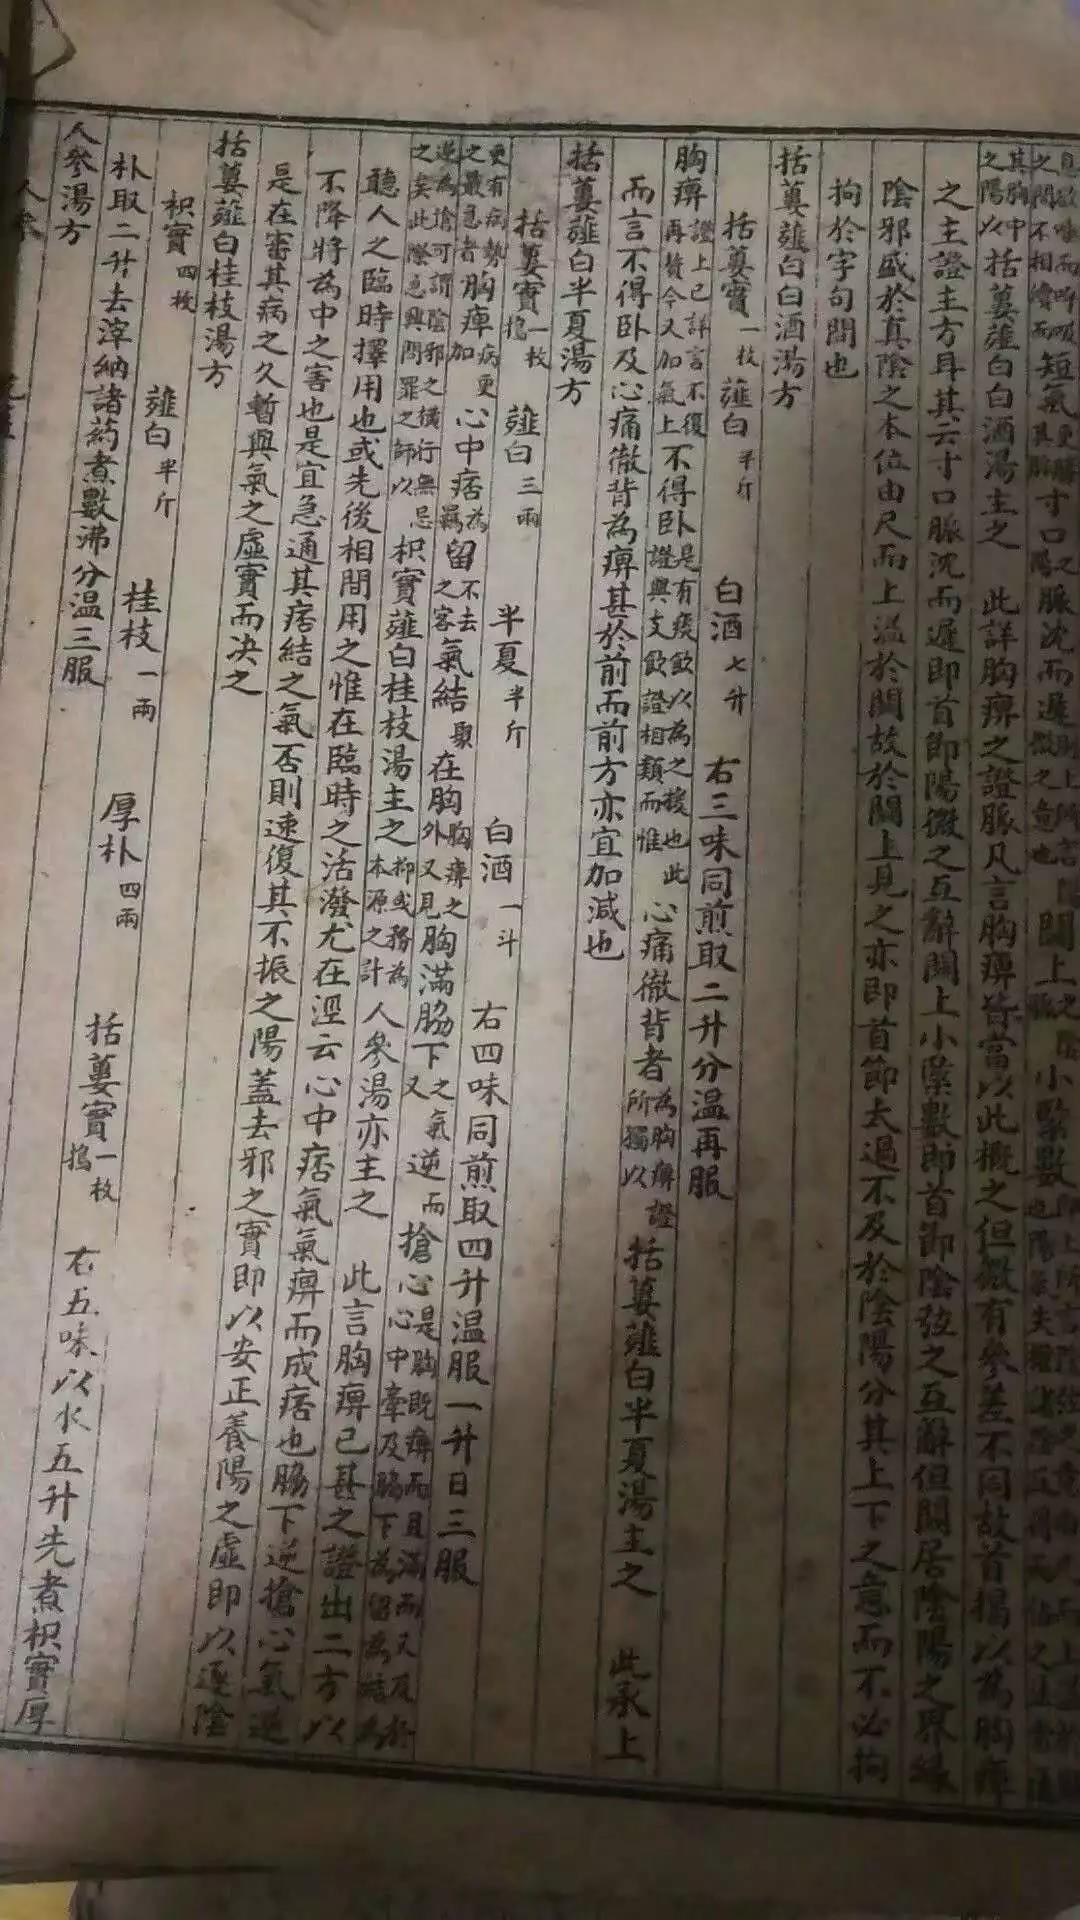 息欲味而呼吸之間不相續而短氣寸口脈沈而遲關上小緊數
其胸中之陽以括蔞薤白白酒湯主之　此詳胸痹之證脈凡言胸痹皆當以此概之但微有參差不同故首揭以為胸痺
之主證主方耳其云寸口脈沈而遲即首節陽微之互辭關上小緊數即首節陰弦之互辭但關居陰陽之界緣
陰邪盛於真陰之本位由尺而上溢於關故於關上見之亦即首節太過不及於陰陽分其上下之意而不必拘
拘於字句間也
括蔞薤白白酒湯方
括蔞實一枚　薤白半斤　白酒七升　右三味同煎取二升分温再服
胸痹證上已詳言不復再贅今又加氣上不得臥是有痰飲以為之援也此證與支飲證相類而惟心痛徹背者為胸痹證所獨以括蔞薤白半夏湯主之　此承上
而言不得卧及心痛徹背為痹甚於前而前方亦宜加減也
括蔞薤白半夏湯方
括蔞實一枚搗　薤白三兩　半夏半斤　白酒一斗　右四味同煎取四升温服一升日三服
更有病勢之最急者胸痺病更加心中痞為留不去之客氣結聚在胸胸痺之外又見胸滿脇下之氣又逆而搶心是胸既痹而且滿而又及於心中牽及脇下為留為結為
逆為搶可謂陰邪之橫行無忌之矣此際急興問罪之師以枳實薤白桂枝湯主之抑或務為本源之計人參湯亦主之　此言胸痹已甚之證出二方以
聽人之臨時擇用也或先後相間用之惟在臨時之活潑尤在涇云心中痞氣氣痹而成痞也脇下逆搶心氣逆
不降將為中之害也是宜急通其痞結之氣否則速復其不振之陽蓋去邪之實即以安正養陽之虛即以逐陰
是在審其病之久暫與氣之虛實而决之
括蔞薤白桂枝湯方
枳實四枚　薤白半斤　桂枝一兩　厚朴四兩　括蔞實一枚搗　右五味以水五升先煮枳實厚
朴取二升去滓納諸药煮數沸分温三服
人參湯方
人參